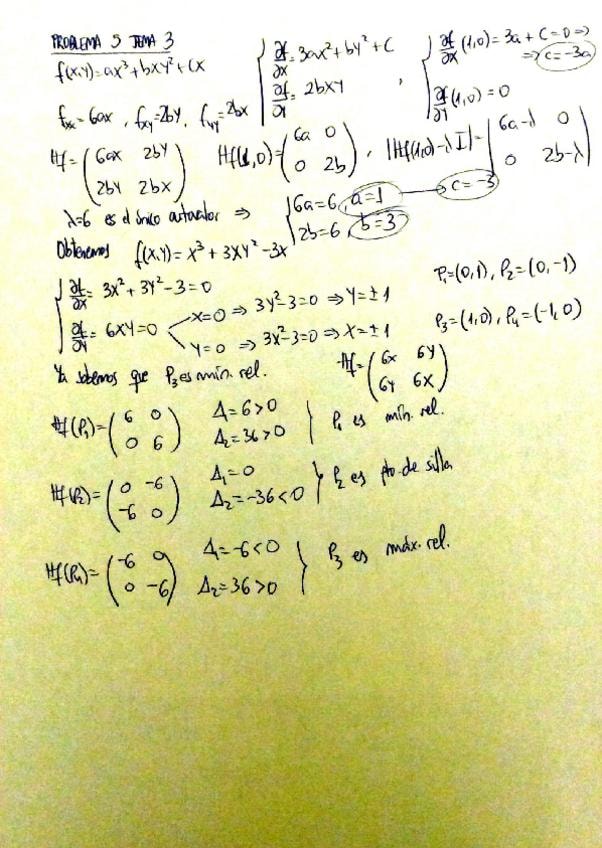 PROBLEMA 5 TEMA 3
f(x,y)=ax³+bxy²+cx
∂f/∂x=3ax²+by²+c
∂f/∂y=2bxy
,
∂f/∂x(1,0)=3a+c=0⇒
⇒c=-3a
∂f/∂y(1,0)=0
fxx=6ax, fxy=2by, fyy=2bx
Hf=(6ax 2by
2by 2bx)
Hf(1,0)=(6a 0
0 2b), |Hf(1,0)-λI|=|6a-λ 0
0 2b-λ|
λ=6 es el único autovalor ⇒
6a=6, a=1 → c=-3
2b=6, b=3
Obtenemos f(x,y)=x³+3xy²-3x
∂f/∂x=3x²+3y²-3=0
∂f/∂y=6xy=0
x=0⇒3y²-3=0⇒y=±1
y=0⇒3x²-3=0⇒x=±1
P₁=(0,1), P₂=(0,-1)
P₃=(1,0), P₄=(-1,0)
Ya sabemos que P₃ es mín. rel.
Hf=(6x 6y
6y 6x)
Hf(P₁)=(6 0
0 6)
Δ=6>0
Δ₂=36>0
P₁ es mín. rel.
Hf(P₂)=(0 -6
-6 0)
Δ₁=0
Δ₂=-36<0
P₂ es pto. de silla
Hf(P₄)=(-6 0
0 -6)
Δ=-6<0
Δ₂=36>0
P₃ es máx. rel.